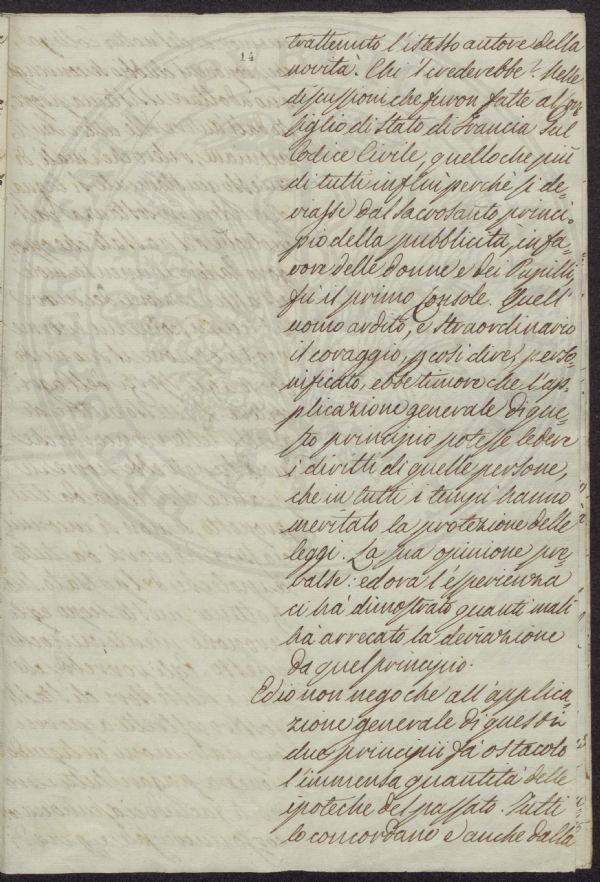 14
trattenuto l'istesso autore della
novità. Chi 'l crederebbe? Nelle
discussioni che furon fatte al Con
siglio di Stato di Francia sul
Codice Civile, quello che più
di tutti influì perchè si de-
viasse dal sacrosanto princi-
pio della pubblicità, in fa-
vore delle donne e dei Pupilli,
fù il primo Console. Quell'
uomo ardito, e straordinario
il coraggio, p così dire, perso-
nificato, ebbe timore che l'ap-
plicazione generale di que-
sto principio potesse ledere
i diritti di quelle persone,
che in tutti i tempi hanno
meritato la protezione delle
leggi. La sua opinione pre-
valse: ed ora l'esperienza
ci ha dimostrato quanti mali
hà arrecato la deviazione
da quel principio.
Ed io non nego che all'applica-
zione generale di questi
due principii fà ostacolo
l'immensa quantità delle
ipoteche del passato. Tutti
lo concordano e anche dalla